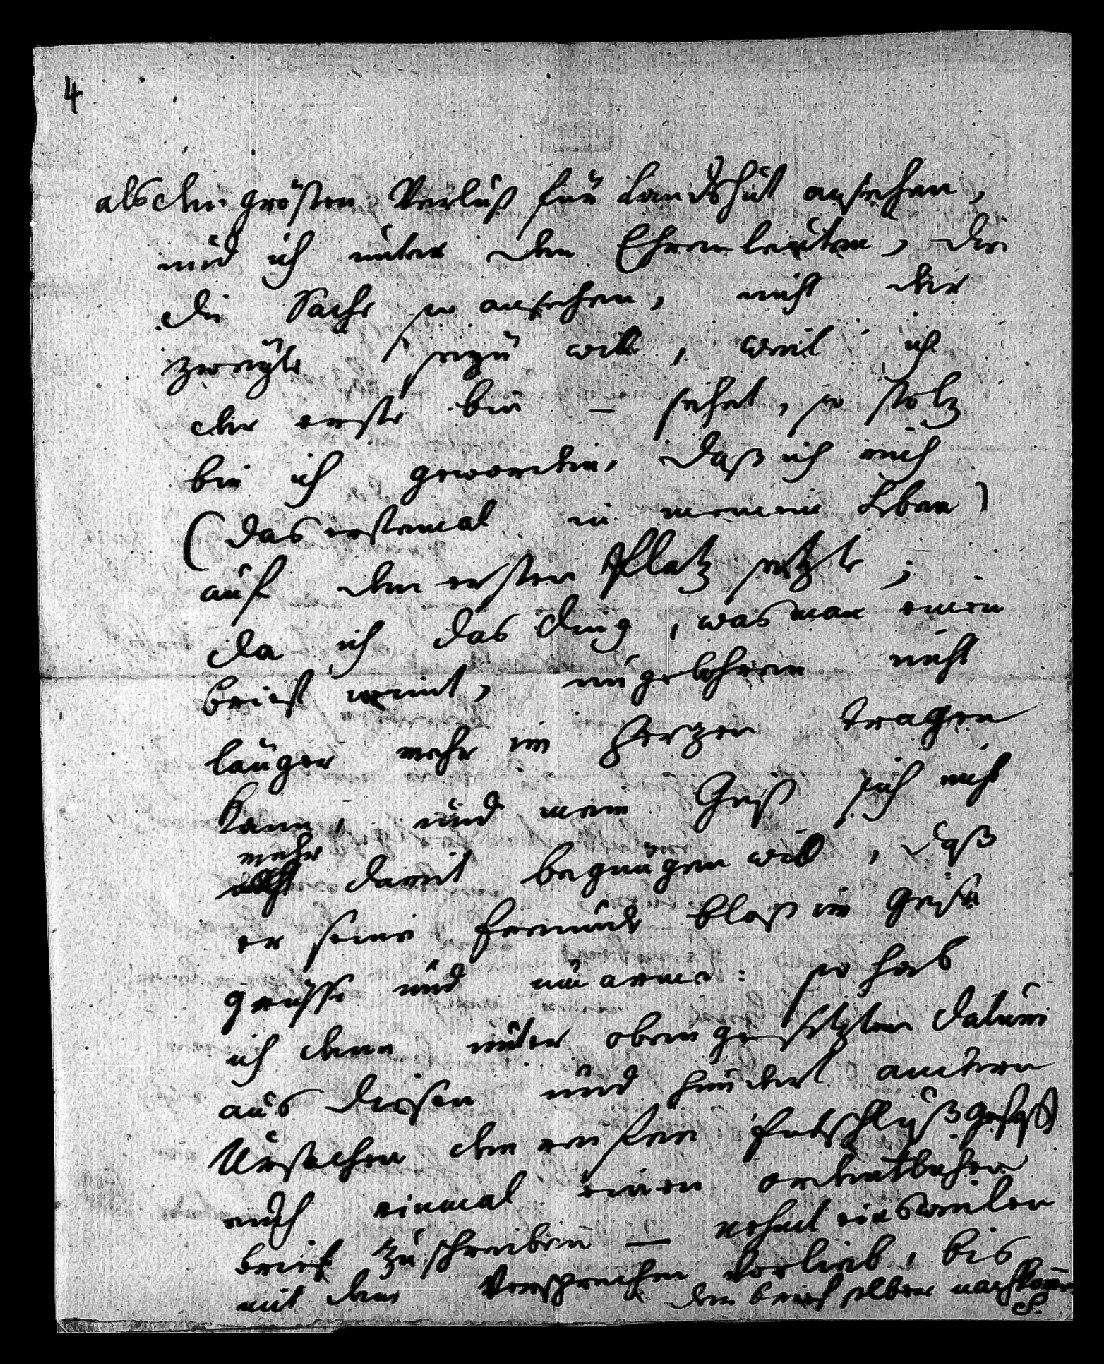 4
als den grösten Verlust für Landshut ansehen,
und ich unter den Ehrenleuten, die
die Sache so ansehen, nicht der
zweyte seyn will, weil ich
der erste bin — sehet, so stolz
bin ich geworden, daß ich mich
(das erstemal in meinem Leben)
auf den ersten Platz setzte;
da ich das Ding, was man einen
brief nennt, ungebohren nicht
länger mehr im Herzen tragen
kann, und mein Geist sich nicht
mehr
damit begnügen will, daß
er seine Freunde bloß im Geiste
grüsse und umarme: so hab
ich denn unter obengesetzten Datum
aus diesen und hundert andern
Ursachen den Entschluß gefaßt
euch einmal einen ordentlichen
brief zuschreiben — nehmt einsweilen
mit dem Versprechen vorlieb, bis
der brief selber nachkömmt
S.